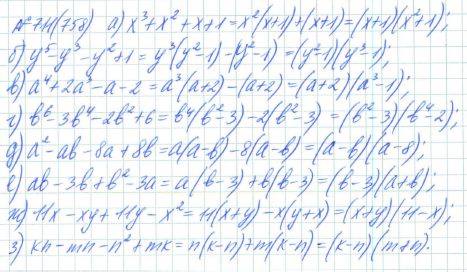 № 711(758) а) x³+x²+x+1=x²(x+1)+(x+1)=(x+1)(x²+1);
б) y⁵-y³-y²+1=y³(y²-1)-(y²-1)=(y²-1)(y³-1);
в) a⁴+2a³-a-2=a³(a+2)-(a+2)=(a+2)(a³-1);
г) b⁶-3b⁴-2b²+6=b⁴(b²-3)-2(b²-3)=(b²-3)(b⁴-2);
д) a²-ab-8a+8b=a(a-b)-8(a-b)=(a-b)(a-8);
е) ab-3b+b²-3a=a(b-3)+b(b-3)=(b-3)(a+b);
ж) 11x-xy+11y-x²=11(x+y)-x(y+x)=(x+y)(11-x);
з) kn-mn-n²+mk=n(k-n)+m(k-n)=(k-n)(m+n).